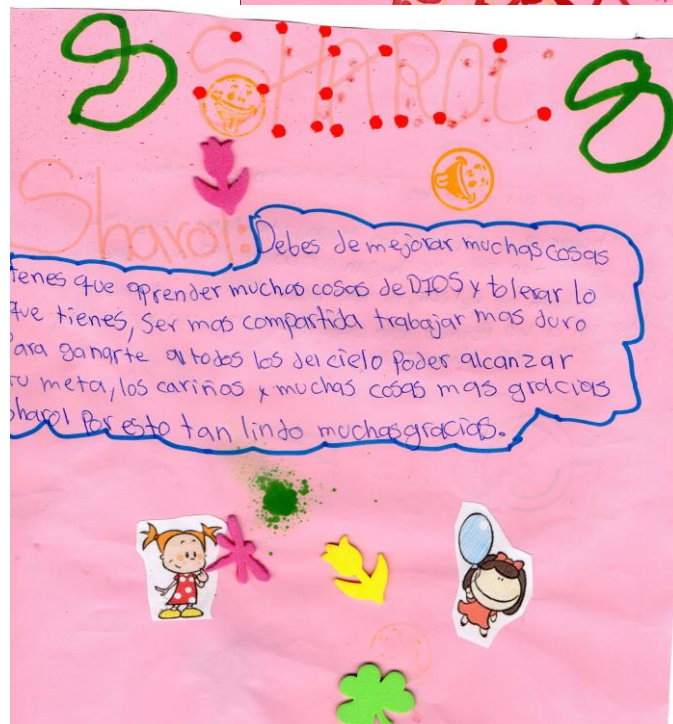 SHAROL
Sharol: Debes de mejorar muchas cosas
tienes que aprender muchas cosas de DIOS y tolerar lo
que tienes, Ser mas compartida trabajar mas duro
Para ganarte a todos los del cielo Poder alcanzar
tu meta, los cariños y muchas cosas mas gracias
Sharol Por esto tan lindo muchas gracias.